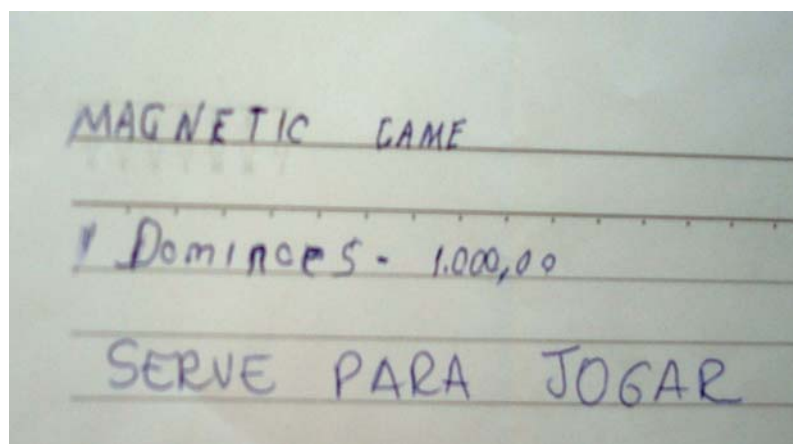 MAGNETIC GAME
Dominoes - 1.000,00
SERVE PARA JOGAR